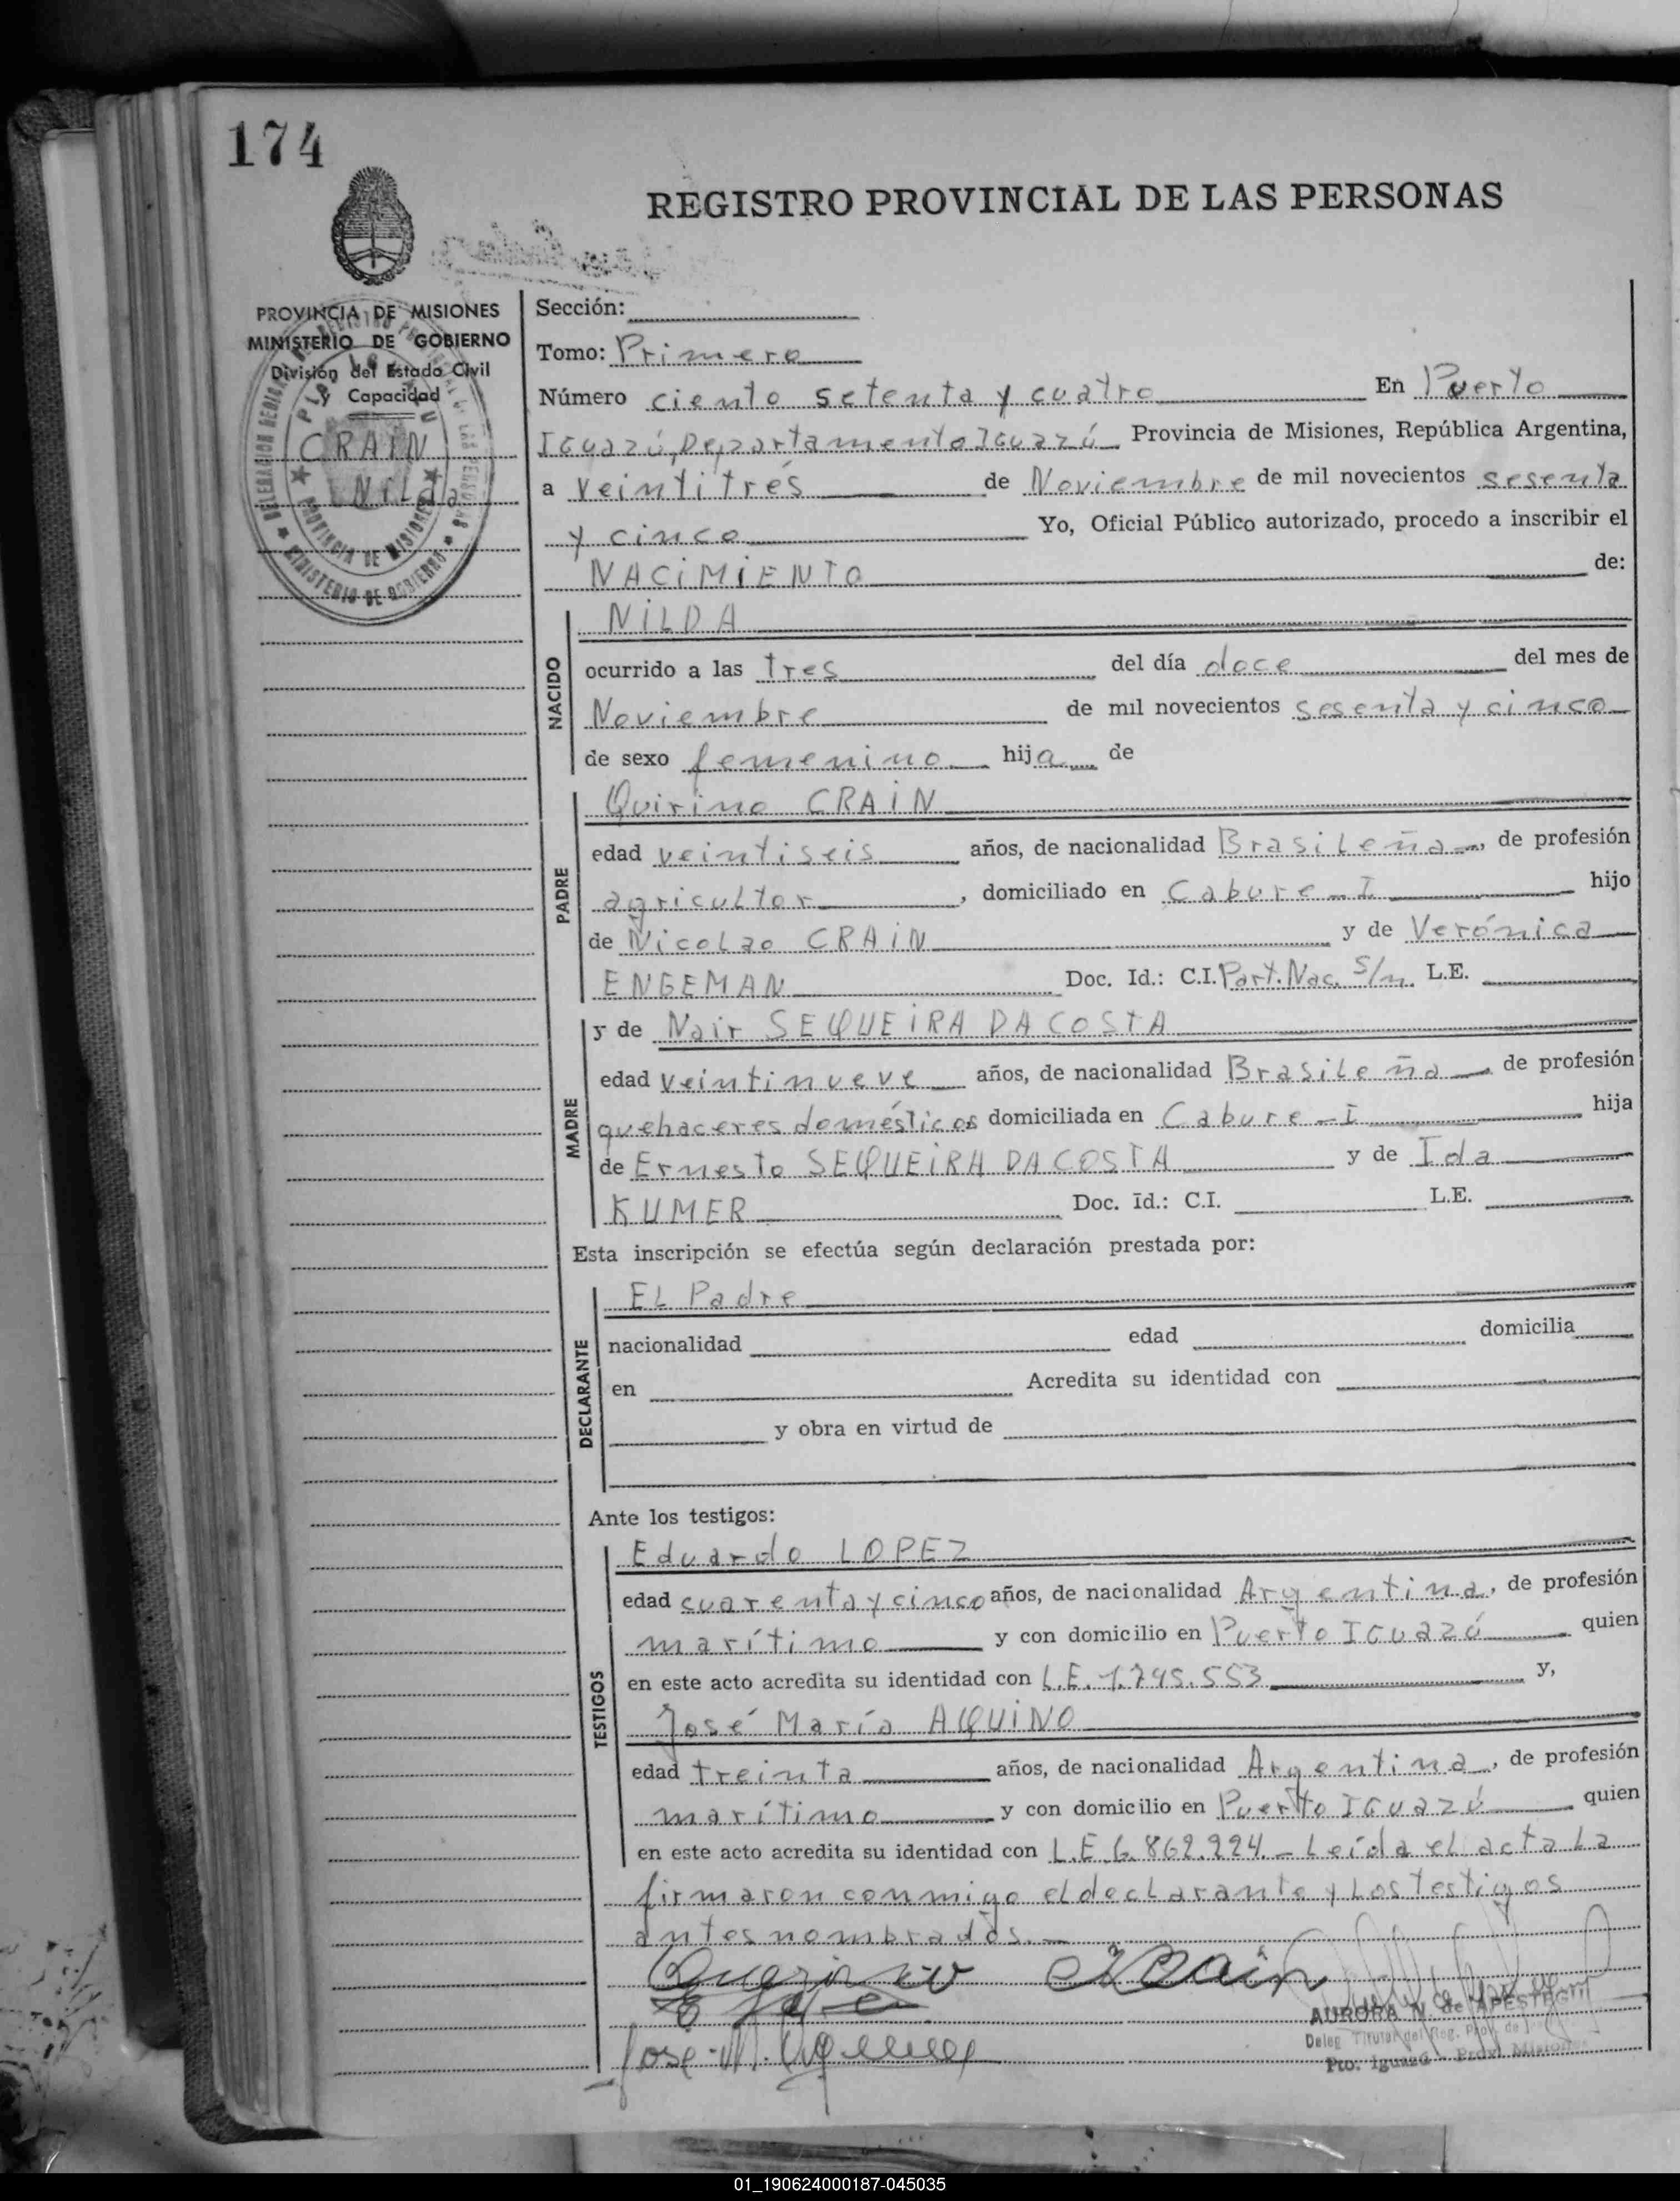 174
REGISTRO PROVINCIAL DE LAS PERSONAS
PROVINCIA DE MISIONES
MINISTERIO DE GOBIERNO
División del Estado Civil
y Capacidad
CRAIN
Nilda
Sección:
Tomo: Primero
Número ciento setenta y cuatro En Puerto
Iguazú, Departamento Iguazú Provincia de Misiones, República Argentina,
a veintitrés de Noviembre de mil novecientos sesenta
y cinco Yo, Oficial Público autorizado, procedo a inscribir el
NACIMIENTO de:
NACIDO
NILDA
ocurrido a las tres del día doce del mes de
Noviembre de mil novecientos sesenta y cinco
de sexo femenino hija de
PADRE
Quirino CRAIN
edad veintiseis años, de nacionalidad Brasileña, de profesión
agricultor, domiciliado en Cabure-I hijo
de Nicolao CRAIN y de Verónica
ENGEMAN Doc. Id.: C.I. Part. Nac. S/n. L.E.
MADRE
y de Nair SEQUEIRA DA COSTA
edad veintinueve años, de nacionalidad Brasileña de profesión
quehaceres domésticos domiciliada en Cabure-I hija
de Ernesto SEQUEIRA DA COSTA y de Ida
KUMER Doc. Id.: C.I. L.E.
Esta inscripción se efectúa según declaración prestada por:
DECLARANTE
El Padre
nacionalidad edad domicilia
en Acredita su identidad con
y obra en virtud de
Ante los testigos:
TESTIGOS
Eduardo LOPEZ
edad cuarenta y cinco años, de nacionalidad Argentina, de profesión
marítimo y con domicilio en Puerto Iguazú quien
en este acto acredita su identidad con L.E. 1.795.553 y,
José María AQUINO
edad treinta años, de nacionalidad Argentina, de profesión
marítimo y con domicilio en Puerto Iguazú quien
en este acto acredita su identidad con L.E. 6.862.224.- Leída el acta la
firmaron conmigo el declarante y los testigos
antes nombrados.-
AURORA N. de APESTEGUI
Deleg Titular del Reg. Prov. de
Pto. Iguazú - Prov. Misiones
José M. Aquino
01_190624000187-045035